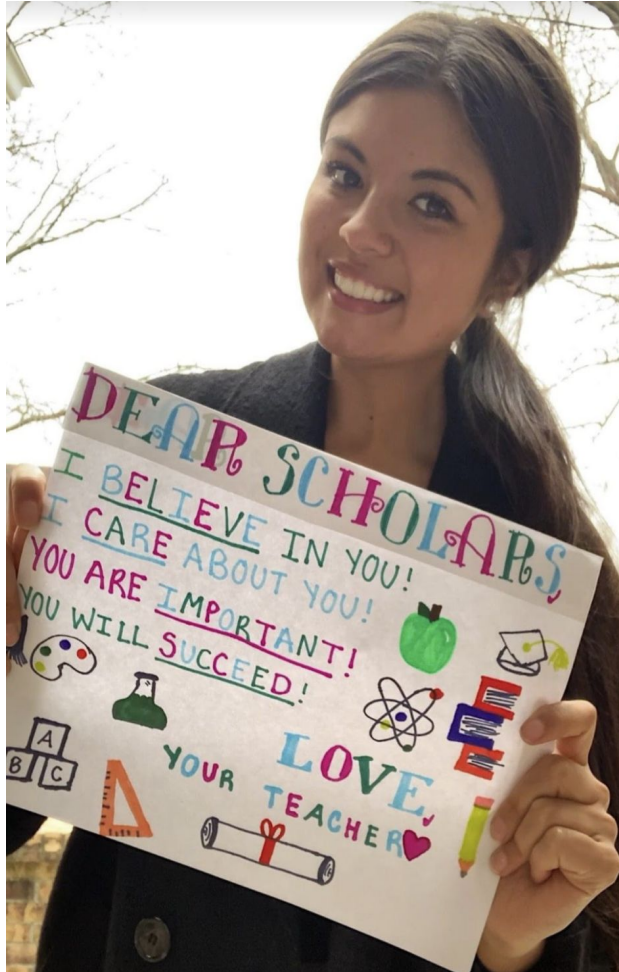 DEAR SCHOLARS,
I BELIEVE IN YOU!
I CARE ABOUT YOU!
YOU ARE IMPORTANT!
YOU WILL SUCCEED!
LOVE,
YOUR TEACHER
A
B C